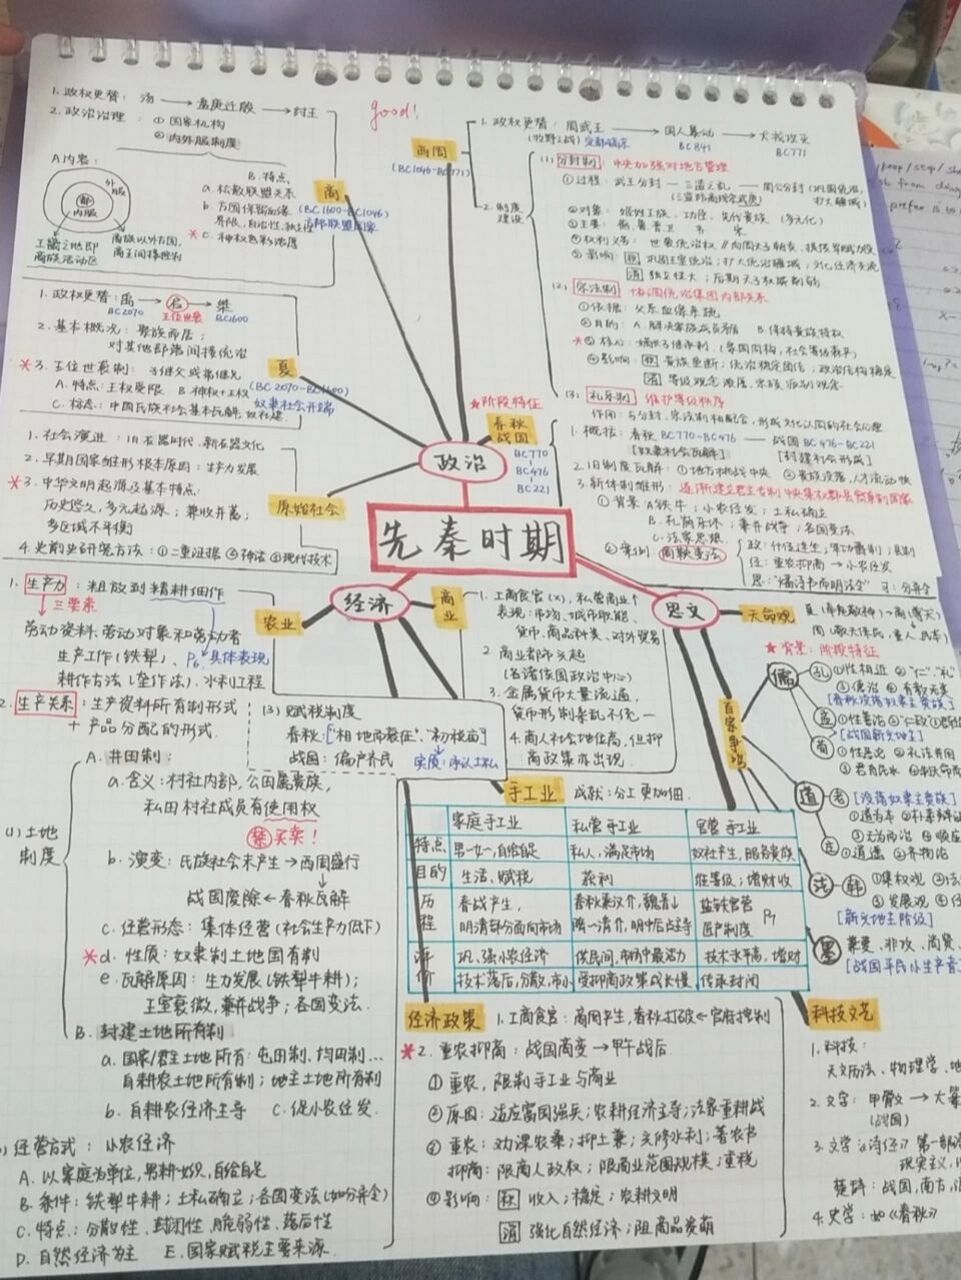 good!
先秦时期
政治
商
(BC1600-BC1046)
方邦联盟国家
1. 政权更替: 汤 → 盘庚迁殷 → 纣王
2. 政治治理: ① 国家机构
② 内外服制度
A内容:
外服
内服
王畿之地即
商族活动区
商族以外方国,
商王间接控制
B. 特点,
a. 松散联盟关系
c. 神权色彩浓厚
夏
(BC2070-BC1600)
奴隶社会开端
1. 政权更替: 禹 → 启 → 桀
BC2070 王位世袭 BC1600
2. 基本概况: 聚族而居;
对其他部落间接统治
*3. 王位世袭制: 子继父或弟继兄
A. 特点: 王权受限 B. 神权+王权
原始社会
1. 社会演进: 旧石器时代、新石器文化
2. 早期国家雏形根本原因: 生产力发展
*3. 中华文明起源及基本特点:
历史悠久, 多元起源; 兼收并蓄;
多区域不平衡
4. 史前史研究方法: ①二重证据 ②神话 ③现代技术
西周
(BC1046-BC771)
1. 政权更替: 周武王 → 国人暴动 → 犬戎攻灭
(牧野之战) BC841 BC771
2. 制度建设
(1) 分封制 中央加强对地方管理
①过程: 武王分封 — 三监之乱 — 周公分封
②对象: 姬姓王族、功臣、先代贵族 (多元化)
巩固王室统治; 扩大统治疆域;
独立性大; 后期天子权威削弱
(2) 宗法制 协调统治集团内部关系
①依据: 父系血缘系统
②目的: A. 解决家族成员矛盾 B. 保持贵族特权
*③ 核心: 嫡长子继承制
④影响: 贵族垄断; 统治稳定团结; 政治结构稳定
(3) 礼乐制 维护等级秩序
作用: 与分封、宗法制相配合, 形成文化认同的社会心理
*阶段特征
春秋
战国
BC770
BC476
BC221
1. 概括: 春秋 BC770-BC476 — 战国 BC476-BC221
[奴隶社会瓦解] [封建社会形成]
2. 旧制度瓦解: ①地方挑战中央 ②贵族没落, 人才流动快
① 背景: A铁牛; 小农经发; 土私确立
B. 礼崩乐坏; 兼并战争; 各国变法
C. 法家思想
② 案例: 商鞅变法
经: 重农抑商 → 小农发
思: "燔诗书而明法令"
经济
农业
1. 生产力: 粗放到精耕细作
三要素
劳动资料、劳动对象和劳动者
生产工作(铁犁)、 具体表现
耕作方法(垄作法)、水利工程
2. 生产关系: 生产资料所有制形式
+ 产品分配的形式.
(1) 土地制度
A. 井田制:
a. 含义: 村社内部, 公田属贵族,
私田村社成员有使用权
禁买卖!
b. 演变: 氏族社会末产生→西周盛行
战国废除←春秋瓦解
c. 经营形态: 集体经营(社会生产力低下)
*d. 性质: 奴隶制土地国有制
e. 瓦解原因: 生力发展(铁犁牛耕);
王室衰微, 兼并战争; 各国变法.
B. 封建土地所有制
a. 国家/君主土地所有: 屯田制、均田制...
自耕农土地所有制; 地主土地所有制
b. 自耕农经济主导 C. 促小农经发.
经营方式: 小农经济
A. 以家庭为单位, 男耕女织, 自给自足
B. 条件: 铁犁牛耕; 土私确立; 各国变法(如分异令)
C. 特点: 分散性、封闭性、脆弱性、落后性
D. 自然经济为主 E. 国家赋税主要来源.
(3) 赋税制度
春秋: ["相地而衰征"、"初税亩"]
实质: 承认土私
商业
1. 工商食官(×), 私营商业↑
表现: 市场、城市职能、
货币、商品种类、对外贸易
2. 商业都市兴起
(各诸侯国政治中心)
3. 金属货币大量流通,
货币形制杂乱不统一
4. 商人社会地位高, 但抑
商政策亦出现.
手工业 成就: 分工更加细.
家庭手工业 私营手工业 官营手工业
特点 男一女一, 自给自足 私人, 满足市场 奴社产生, 服务贵族
目的 生活、赋税 获利 性等级; 增财收
历程 春战产生, 盐铁官营
明清部分面向市场 隋一清介, 明中后占主导 匠户制度
评价 巩、强小农经济 便民间, 市场中最活力 技术水平高, 增财
技术落后, 分散, 市小 受抑商政策成长慢 传承封闭
经济政策
1. 工商食官: 商周产生, 春秋打破←官府控制
*2. 重农抑商: 战国商变→甲午战后
① 重农, 限制手工业与商业
② 原因: 适应富国强兵; 农耕经济主导; 法家重耕战
③ 重农: 劝课农桑; 抑土兼; 兴修水利; 著农书
抑商: 限商人政权; 限商业范围规模; 重税
④ 影响: 积 收入; 稳定; 农耕文明
消 强化自然经济; 阻商品发萌
思文
天命观
*背景: 阶段特征
百家争鸣
儒
孔 ①性相近 ②"仁"、"礼"
③德治 ④有教无类
[春秋没落奴隶主贵族]
孟 ①性善论 ②仁政
[战国新兴地主]
荀 ①性恶论 ②礼法并用
③君舟民水
道
老 [没落奴隶主贵族]
①道为本
③无为而治
庄 ①逍遥 ②齐物论
法 韩 ①集权观
③发展观
[新兴地主阶级]
墨 兼爱、非攻、尚贤
[战国平民小生产者
科技文艺
1. 科技:
天文历法、物理学、
2. 文字: 甲骨文 →
(战国)
3. 文学《诗经》第一部
现实主义,
楚辞: 战国, 南方,
4. 史学: 如《春秋》